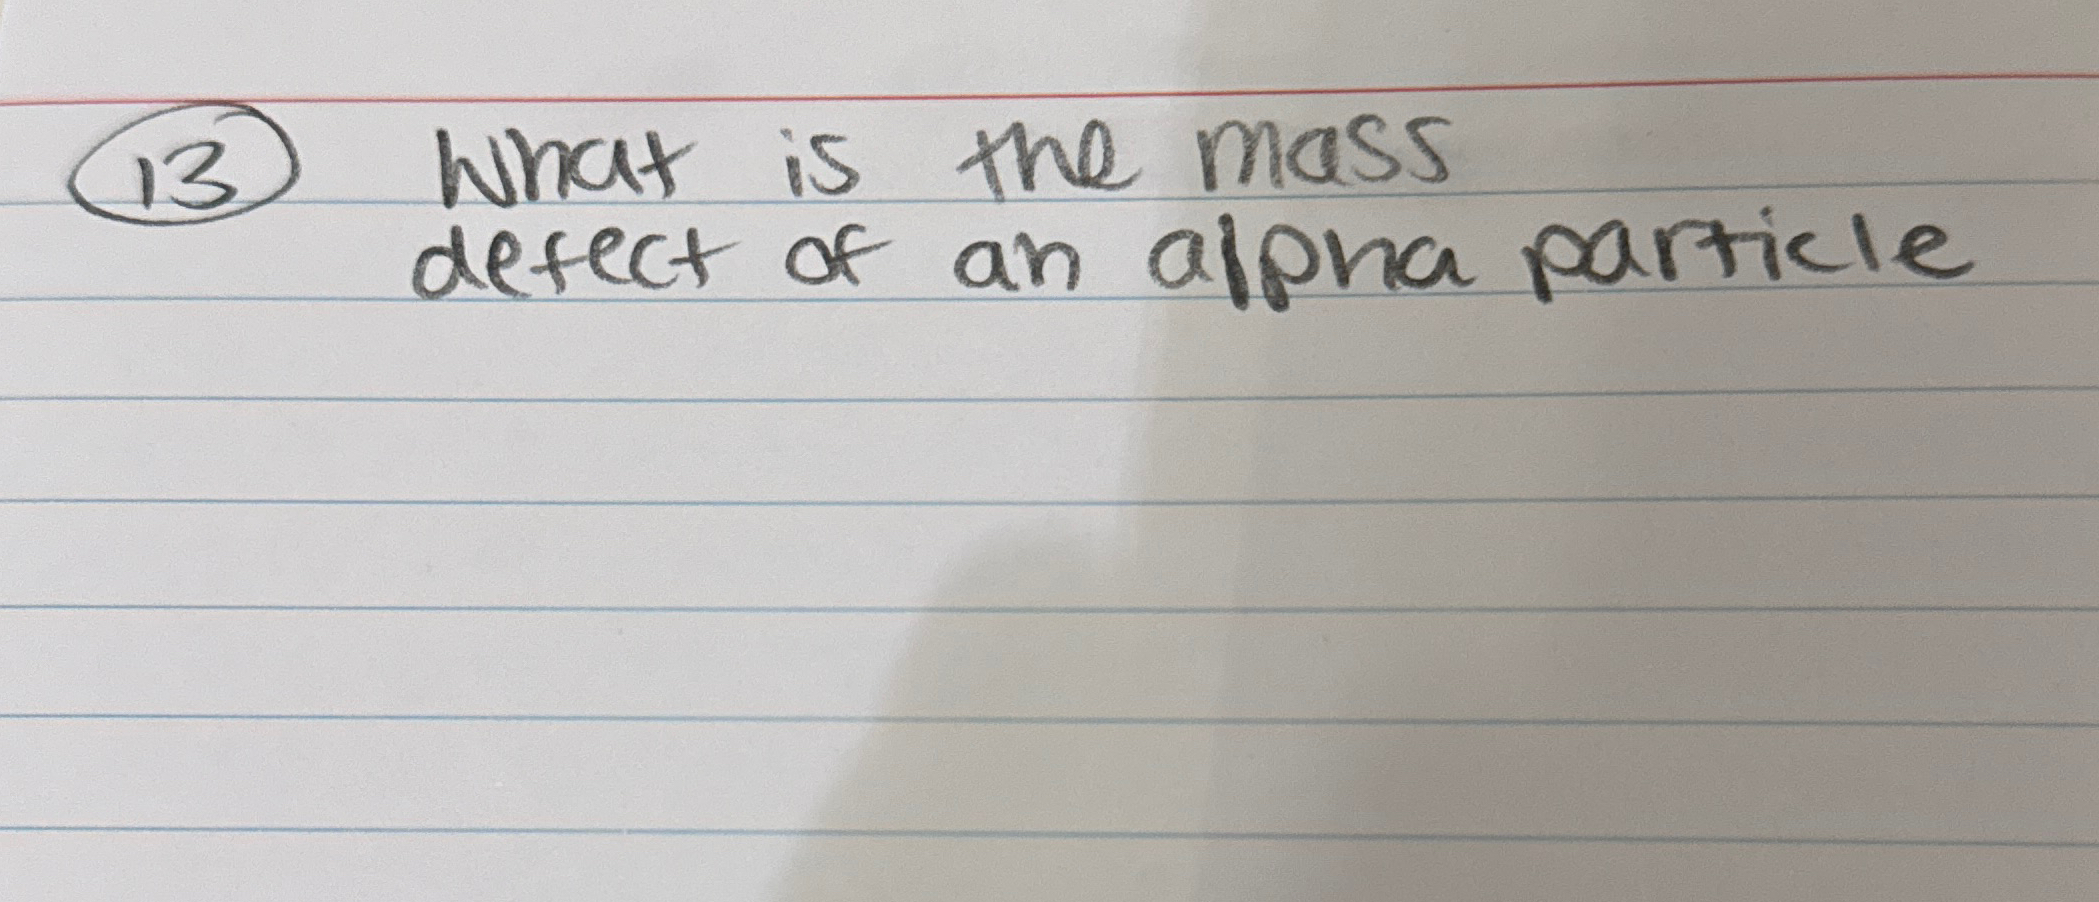 13 What is the mass
defect of an alpha particle